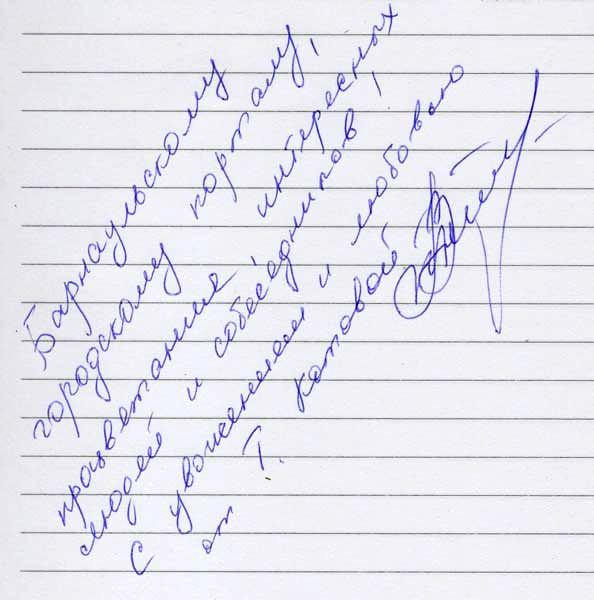 Барнаульскому
городскому порталу,
процветания! интересных
людей и собеседников!
С уважением и любовью
от Т. Котовой